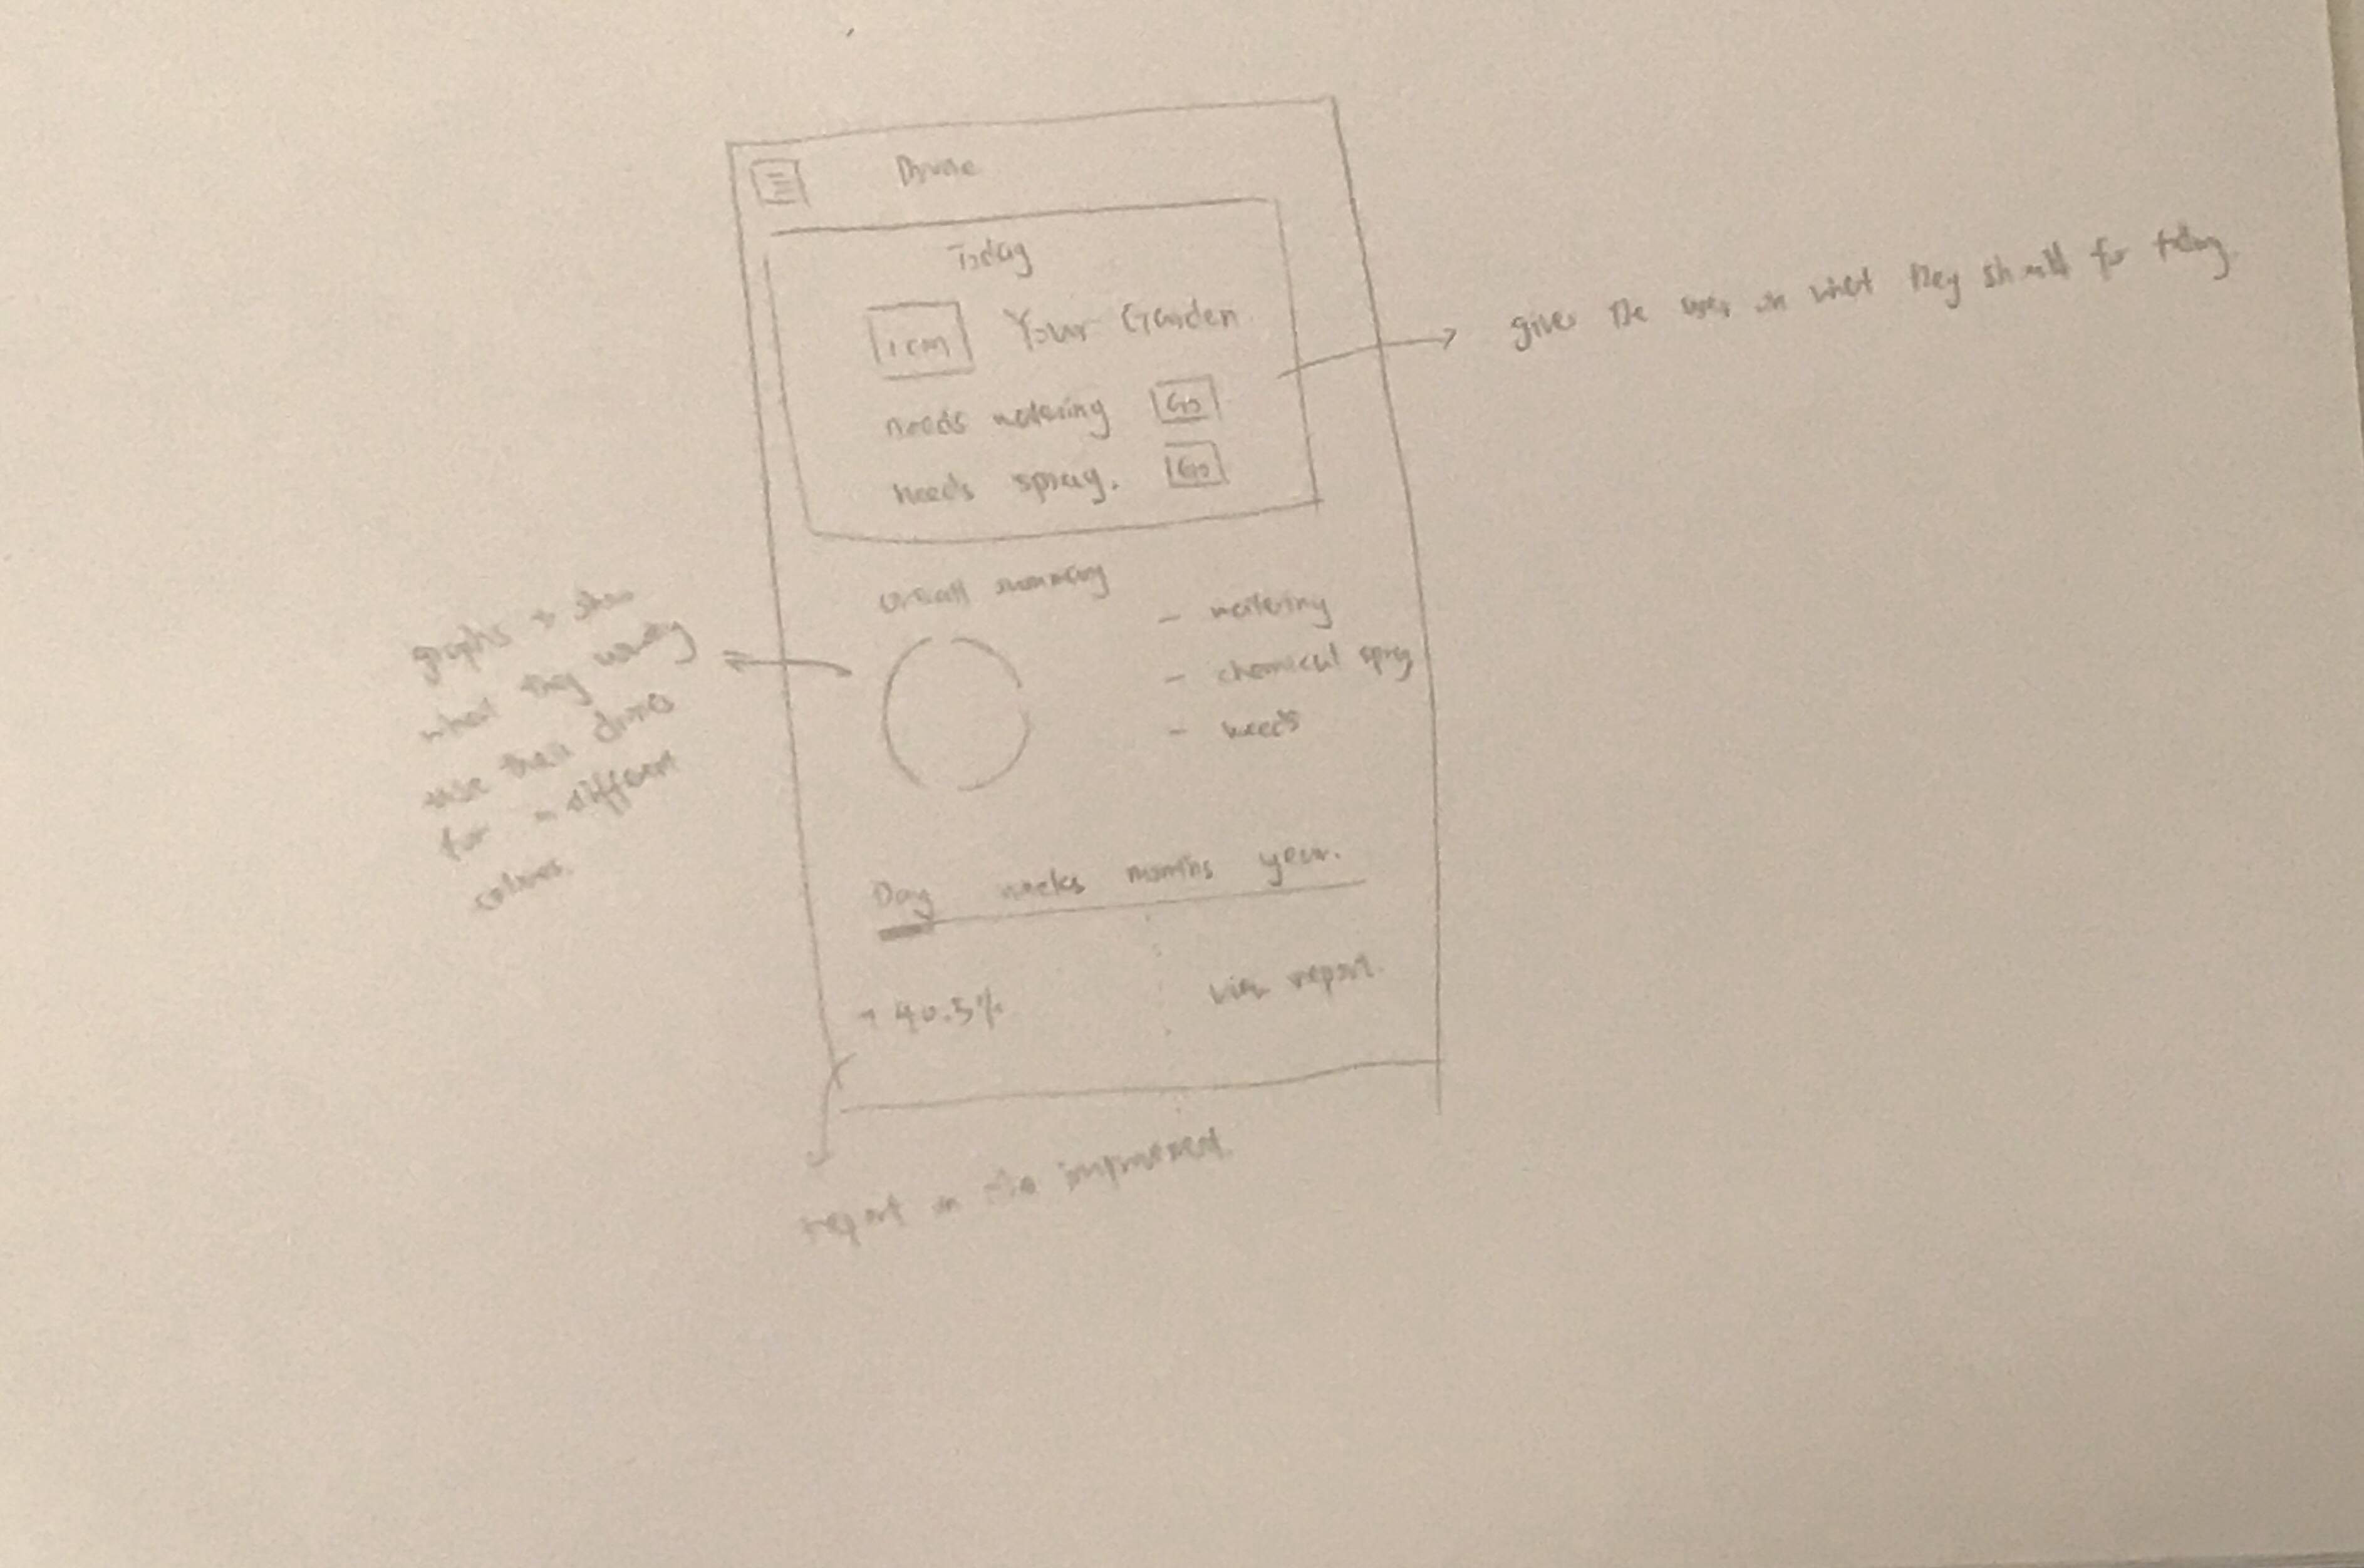 Today
icon Your Garden
needs watering Go
needs spray. Go
gives the user on what they should for today.
overall summary
- watering
- chemical spray
- weeds
graphs to show
what they usually
use their drones
for in different
colours.
Day weeks months year.
40.5% view report.
report on the